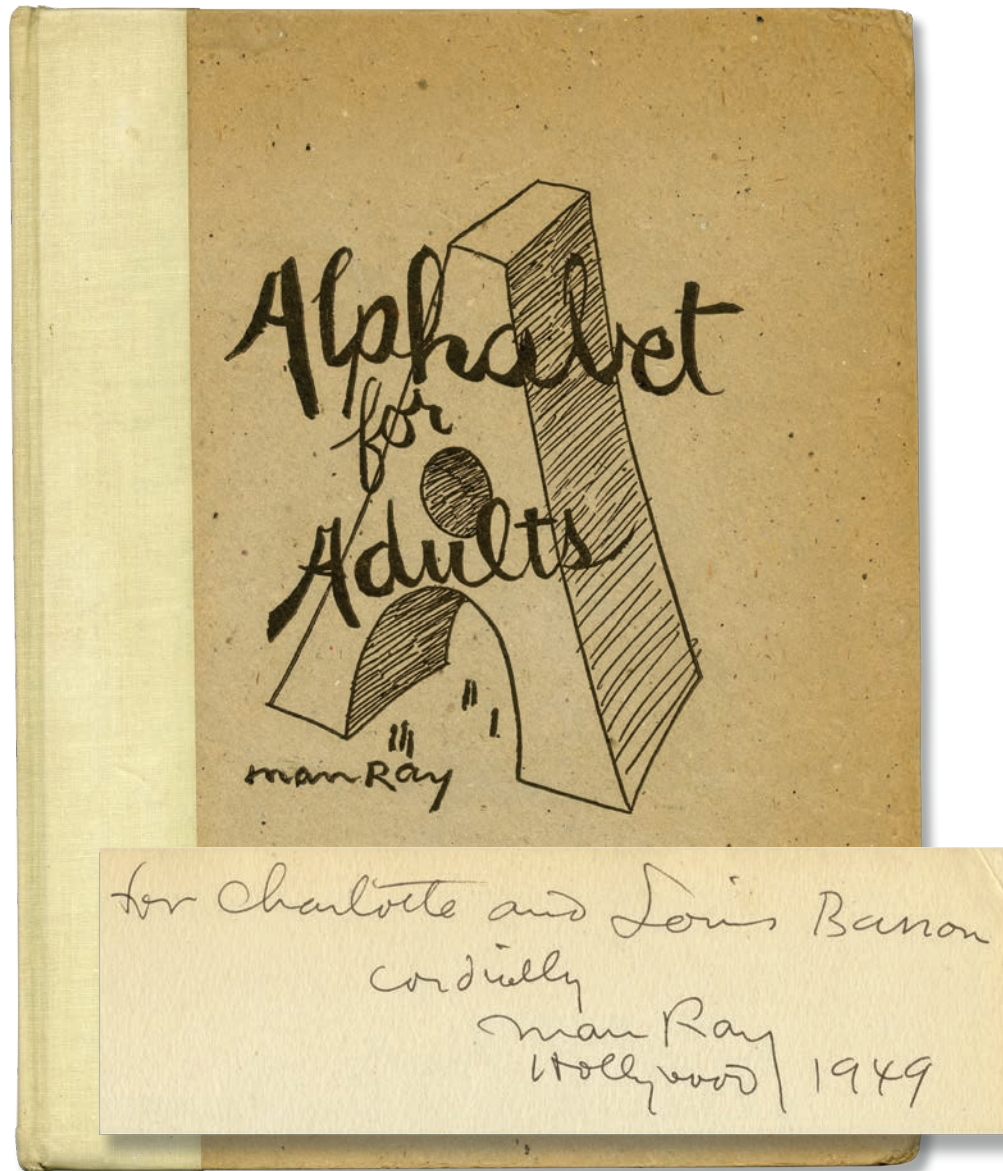 Alphabet
for
Adults
man Ray
for Charlotte and Louis Barron
cordially
man Ray
Hollywood 1949